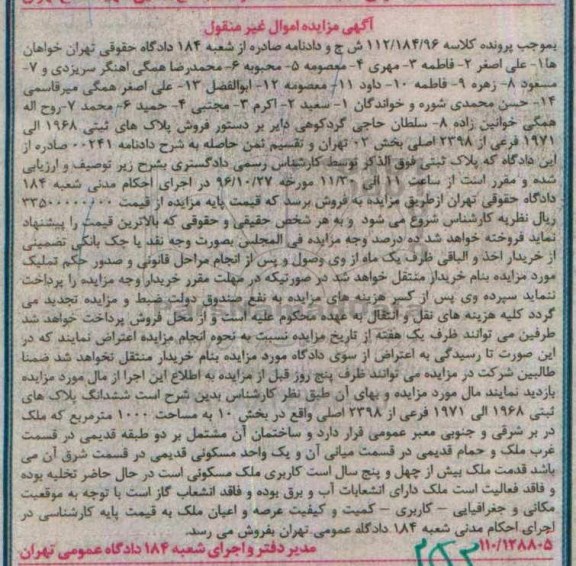 آگهی مزایده اموال غیر منقول
بموجب پرونده کلاسه ۱۱۲/۱۸۴/۹۶ ش ج و دادنامه صادره از شعبه ۱۸۴ دادگاه حقوقی تهران خواهان
ها۱- علی اصغر ۲- فاطمه ۳- مهری ۴- معصومه ۵- محبوبه ۶- محمدرضا همگی اهنگر سریزدی و ۷-
مسعود ۸- زهره ۹- فاطمه ۱۰- داود ۱۱- معصومه ۱۲- ابوالفضل ۱۳- علی اصغر همگی میرقاسمی
۱۴- حسن محمدی شوره و خواندگان ۱- سعید ۲- اکرم ۳- مجتبی ۴- حمید ۶- محمد ۷-روح اله
همگی خوانین زاده ۸- سلطان حاجی گردکوهی دایر بر دستور فروش پلاک های ثبتی ۱۹۶۸ الی
۱۹۷۱ فرعی از ۲۳۹۸ اصلی بخش ۰۲ تهران و تقسیم ثمن حاصله به شرح دادنامه ۰۰۲۴۱ صادره از
این دادگاه که پلاک ثبتی فوق الذکر توسط کارشناس رسمی دادگستری بشرح زیر توصیف و ارزیابی
شده و مقرر است از ساعت ۱۱ الی ۱۱/۳۰ مورخه ۹۶/۱۰/۲۷ در اجرای احکام مدنی شعبه ۱۸۴
دادگاه حقوقی تهران ازطریق مزایده به فروش برسد که قیمت پایه مزایده از قیمت ۳۳۵۰۰۰۰۰۰۰۰
ریال نظریه کارشناس شروع می شود و به هر شخص حقیقی و حقوقی که بالاترین قیمت را پیشنهاد
نماید فروخته خواهد شد ده درصد وجه مزایده فی المجلس بصورت وجه نقد یا چک بانکی تضمینی
از خریدار اخذ و الباقی ظرف یک ماه از وی وصول و پس از انجام مراحل قانونی و صدور حکم تملیک
مورد مزایده بنام خریدار منتقل خواهد شد در صورتیکه در مهلت مقرر خریدار وجه مزایده را پرداخت
ننماید سپرده وی پس از کسر هزینه های مزایده به نفع صندوق دولت ضبط و مزایده تجدید می
گردد کلیه هزینه های نقل و انتقال به عهده محکوم علیه است و از محل فروش پرداخت خواهد شد
طرفین می توانند ظرف یک هفته از تاریخ مزایده نسبت به نحوه انجام مزایده اعتراض نمایند که در
این صورت تا رسیدگی به اعتراض از سوی دادگاه مورد مزایده بنام خریدار منتقل نخواهد شد ضمنا
طالبین شرکت در مزایده می توانند ظرف پنج روز قبل از مزایده به اطلاع این اجرا از مال مورد مزایده
بازدید نمایند مال مورد مزایده و بهای آن طبق نظر کارشناس بدین شرح است ششدانگ پلاک های
ثبتی ۱۹۶۸ الی ۱۹۷۱ فرعی از ۲۳۹۸ اصلی واقع در بخش ۱۰ به مساحت ۱۰۰۰ مترمربع که ملک
در بر شرقی و جنوبی معبر عمومی قرار دارد و ساختمان آن مشتمل بر دو طبقه قدیمی در قسمت
غرب ملک و حمام قدیمی در قسمت میانی آن و یک واحد مسکونی قدیمی در قسمت شرق آن می
باشد قدمت ملک بیش از چهل و پنج سال است کاربری ملک مسکونی است در حال حاضر تخلیه بوده
و فاقد فعالیت است ملک دارای انشعابات آب و برق بوده و فاقد انشعاب گاز است با توجه به موقعیت
مکانی و جغرافیایی – کاربری – کمیت و کیفیت عرصه و اعیان ملک به قیمت پایه کارشناسی در
اجرای احکام مدنی شعبه ۱۸۴ دادگاه عمومی تهران بفروش می رسد.
۱۱۰/۱۳۸۸۰۵ مدیر دفتر و اجرای شعبه ۱۸۴ دادگاه عمومی تهران